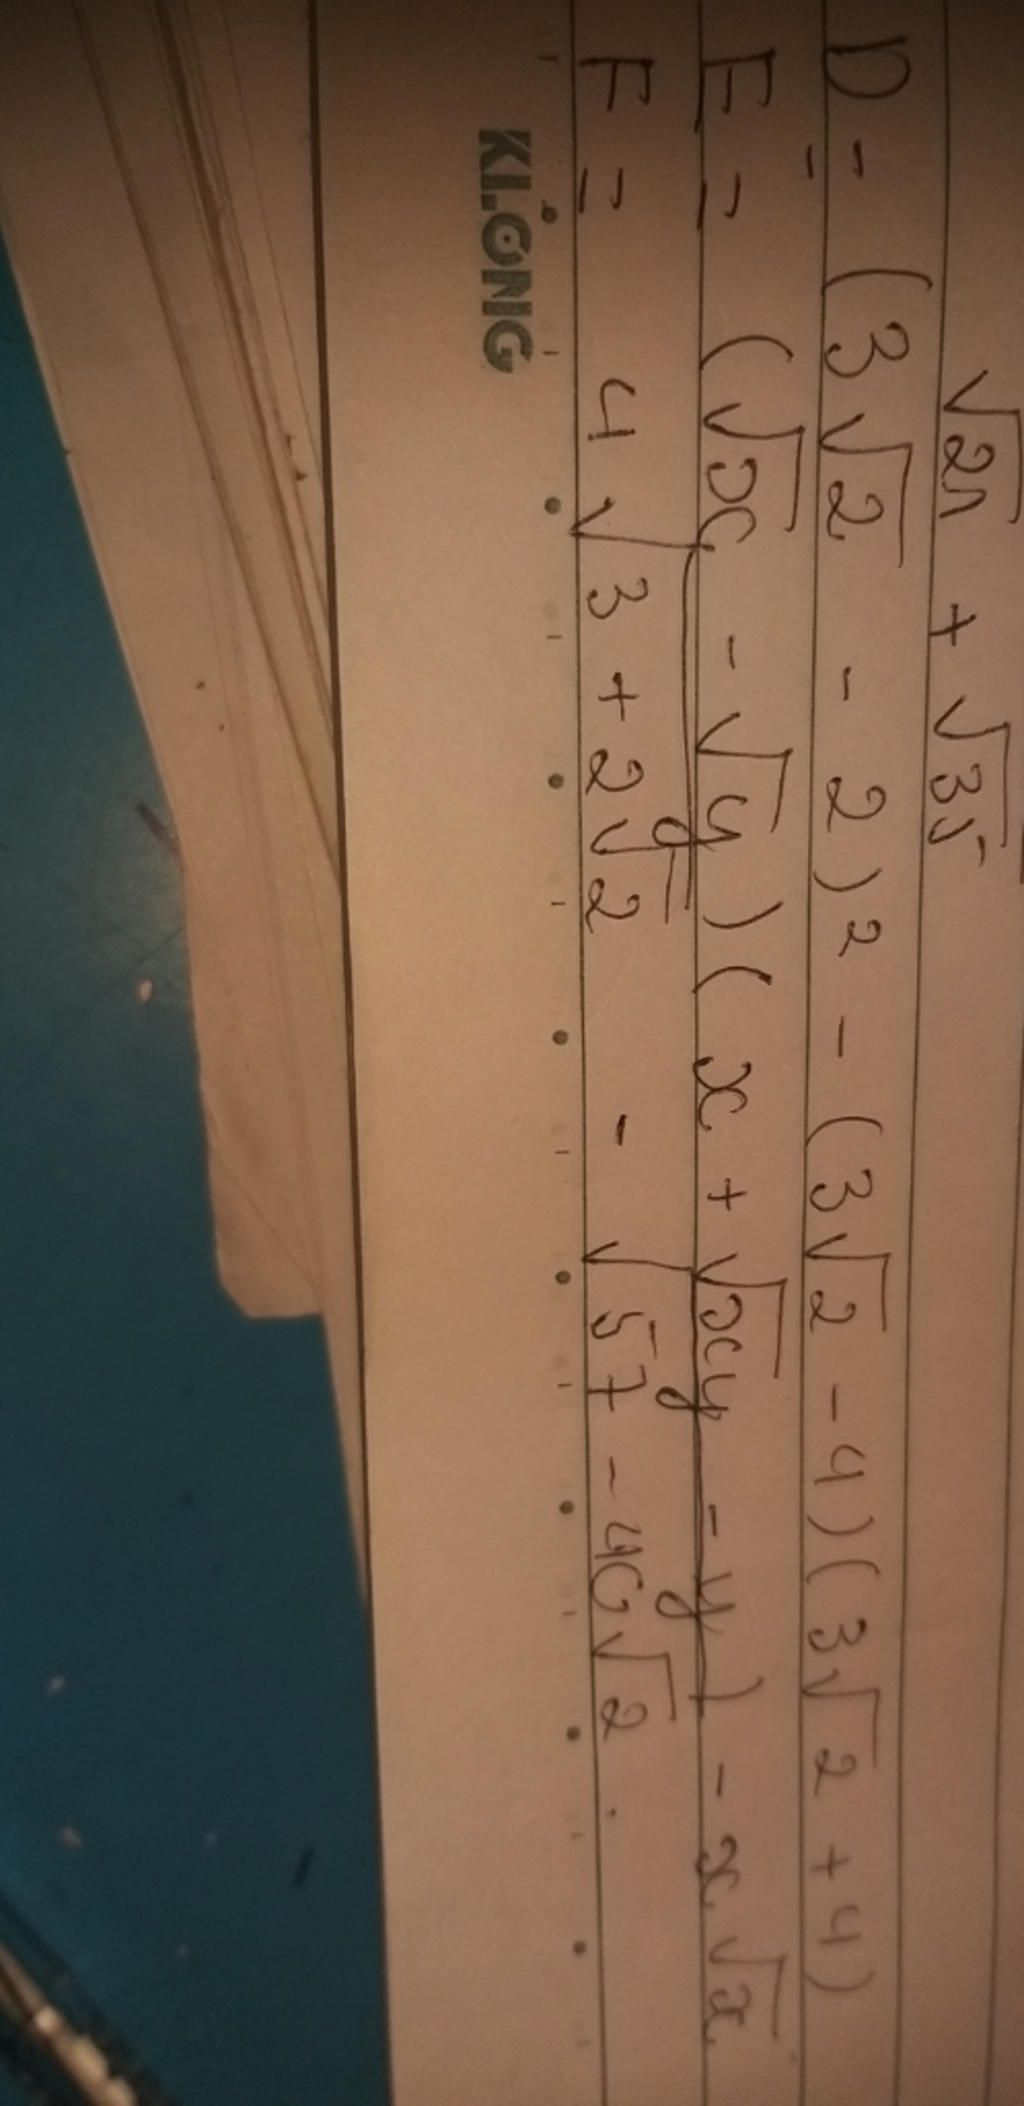 √21 + √35
D = (3√2 - 2)² - (3√2 - 4)(3√2 + 4)
E = (√x - √y)(x + √xy - y) - x√x
F = 4√3 + 2√2 - √57 - 40√2
KLONG